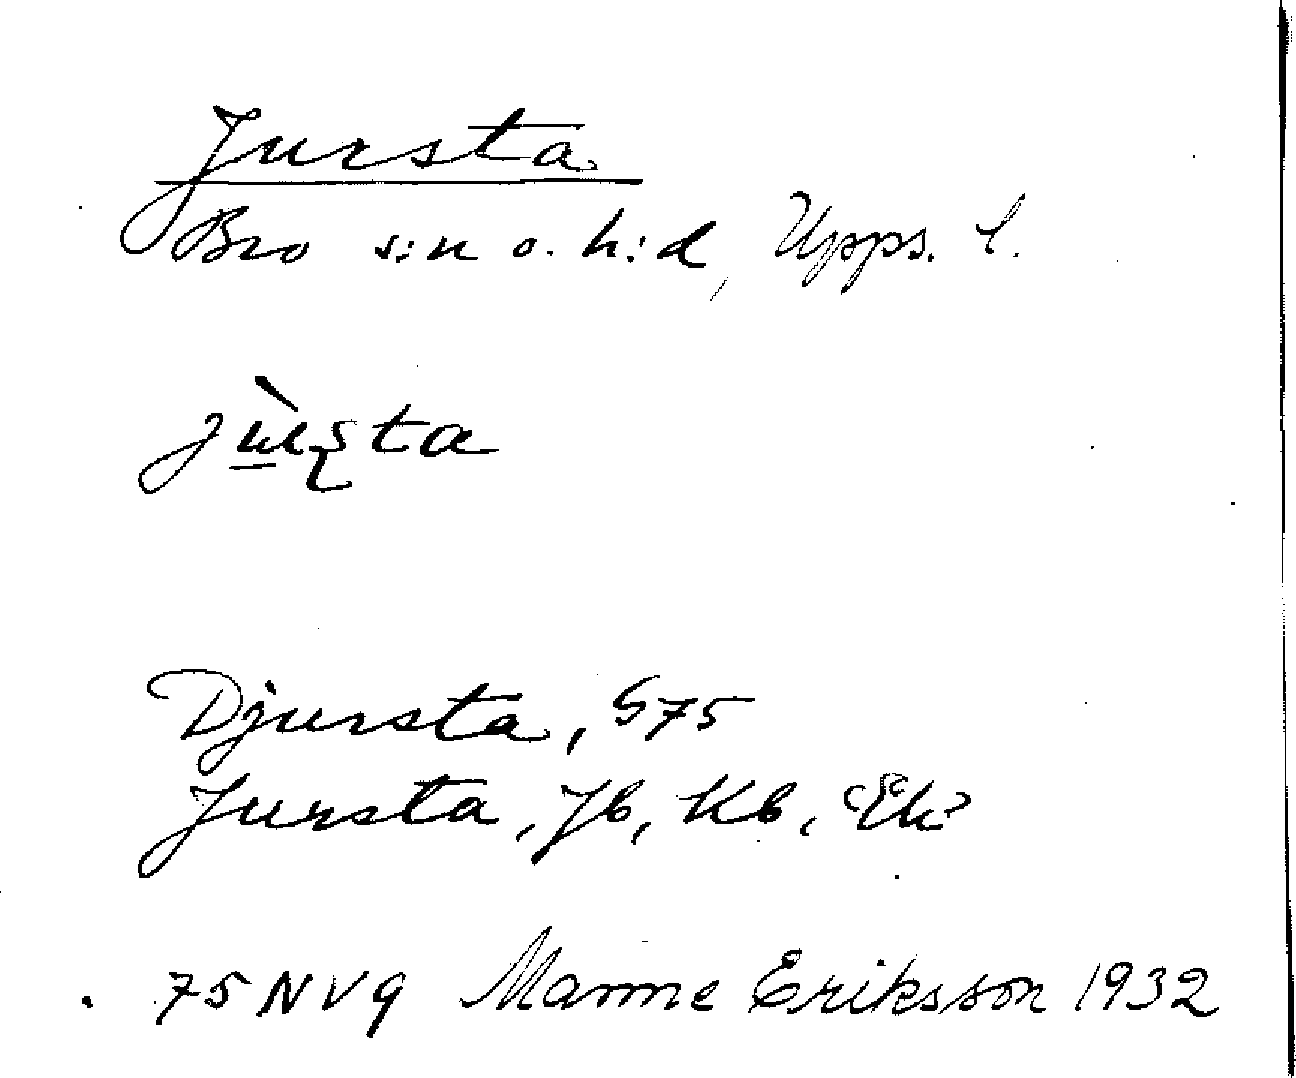 Jursta
Bro s:n o. h:d, Upps. l.
Djursta, S75
Jursta, Jb, Kb, Ek
75 NV9 Manne Eriksson 1932